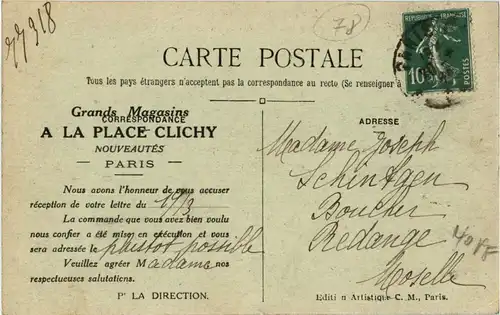 77318
78
RÉPUBLIQUE FRANÇAISE
10c
POSTES
CARTE POSTALE
Tous les pays étrangers n'acceptent pas la correspondance au recto (Se renseigner à
Grands Magasins
CORRESPONDANCE
A LA PLACE CLICHY
NOUVEAUTÉS
PARIS
Nous avons l'honneur de vous accuser
réception de votre lettre du 19/3
La commande que vous avez bien voulu
nous confier a été mise en exécution et vous
sera adressée le plustôt possible
Veuillez agréer Madame nos
respectueuses salutations.
Pr LA DIRECTION.
ADRESSE
Madame Joseph
Schintgen
Boucher
Redange
Moselle
Editi n Artistique C. M., Paris.